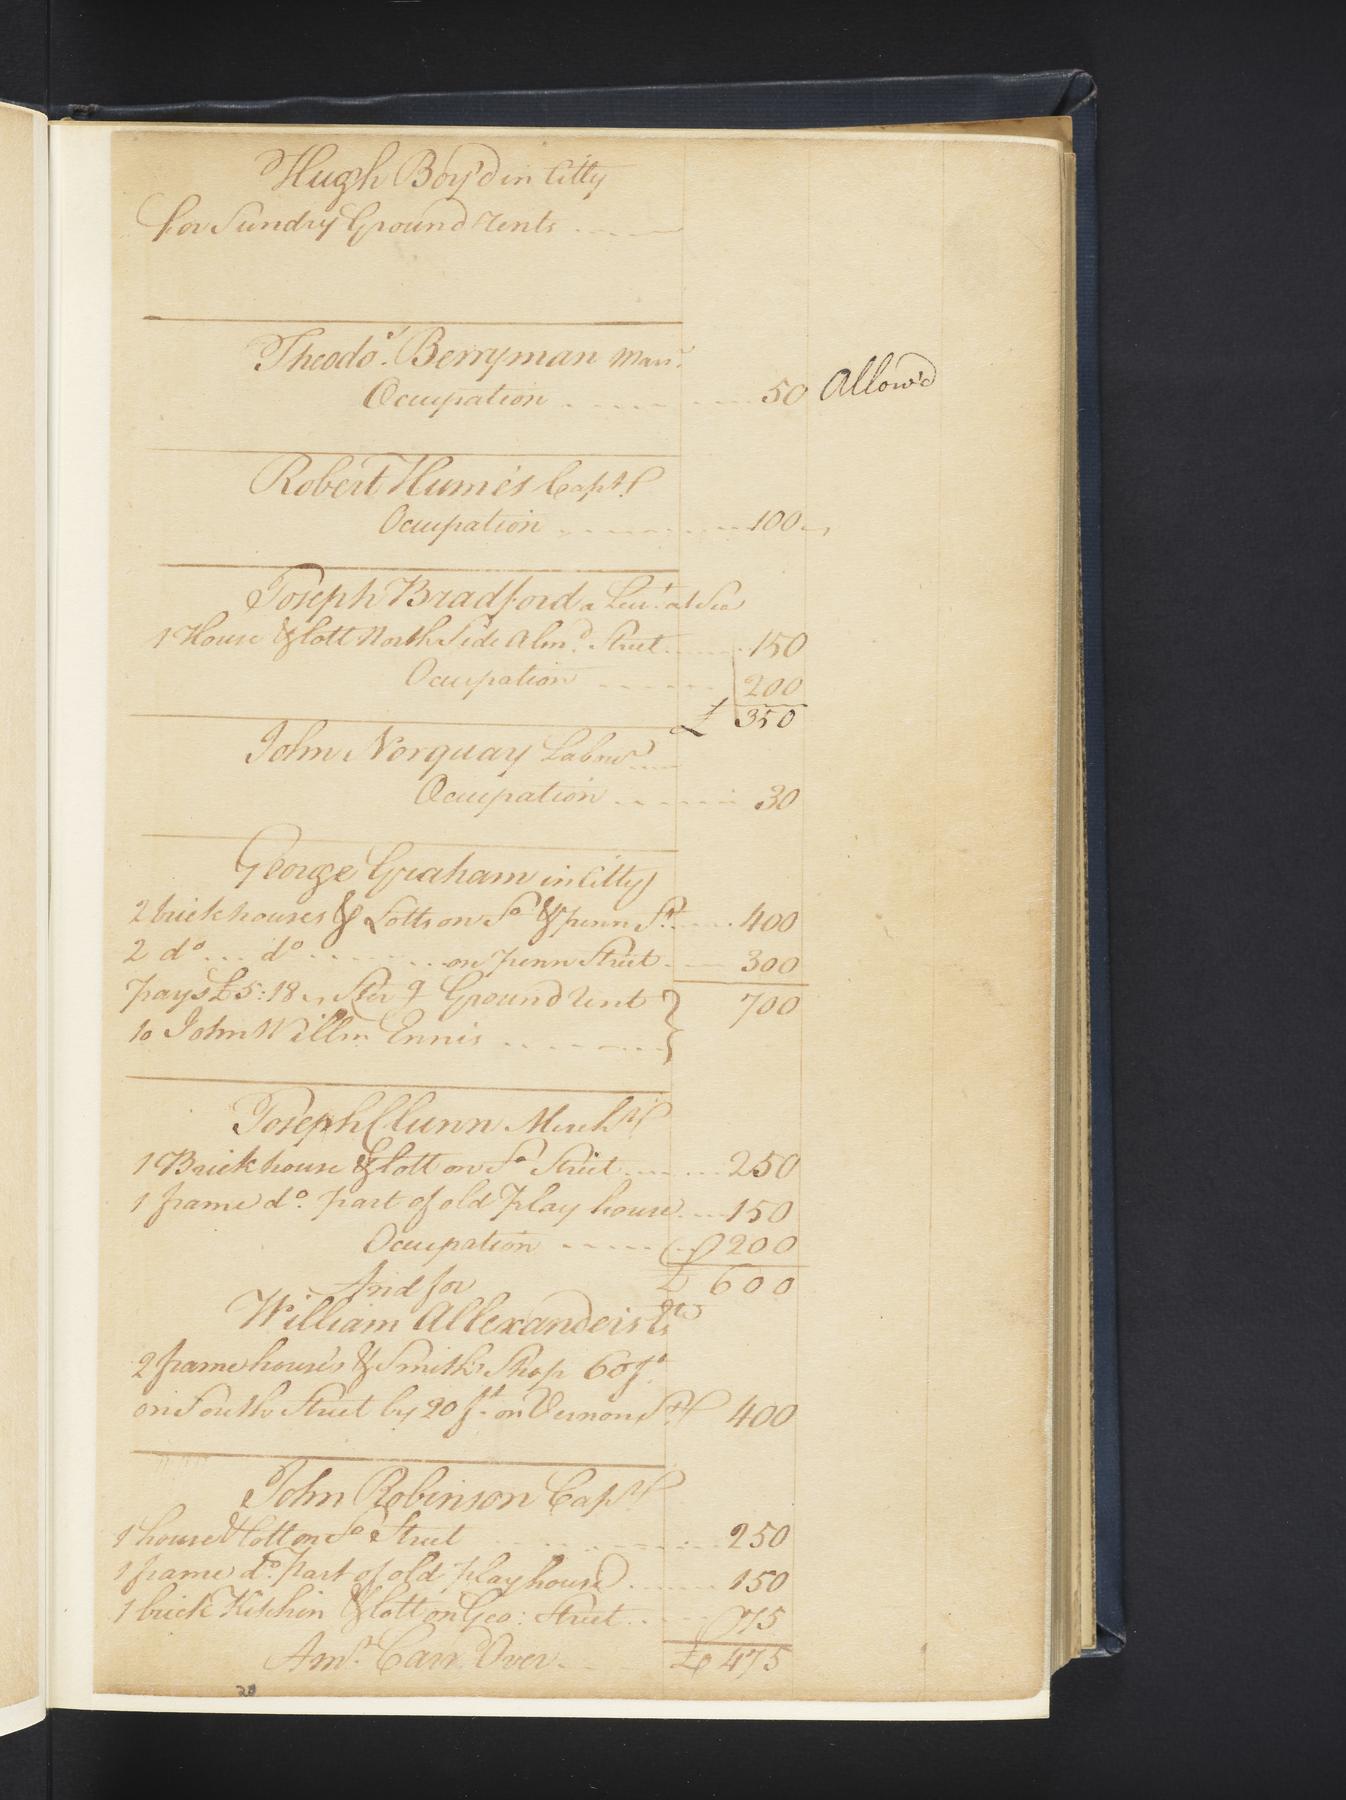 Hugh Boyd in Citty
for Sundry Ground rents
Theodo.s Berryman Marr.
Occupation 50 Allow'd
Robert Humes Capt.
Occupation 100
Joseph Bradford a Leiut at Sea
1 House & lott North Side Almd. Street 150
Occupation 200
£ 350
John Norquay Labour
Occupation 30
George Graham in Citty
2 brick houses & Lotts on So. & penn St. 400
2 do do on penn Street 300
pays £5:18 Ster g Ground rent 700
to John Willm Ennis
Joseph Clunn Mercht
1 Brick house & lott on So Street 250
1 frame do. part of old play house 150
Occupation 200
And for £ 600
William Allexanders Ets
2 frame houses & Smiths Shop 60 ft
on South Street by 20 ft on Vernon St 400
John Robinson Capt
1 house & lott on So Street 250
1 frame do. part of old playhouse 150
1 brick Kitchin & lott on Geo: Street 75
Amt. Carrd Over £ 475
20